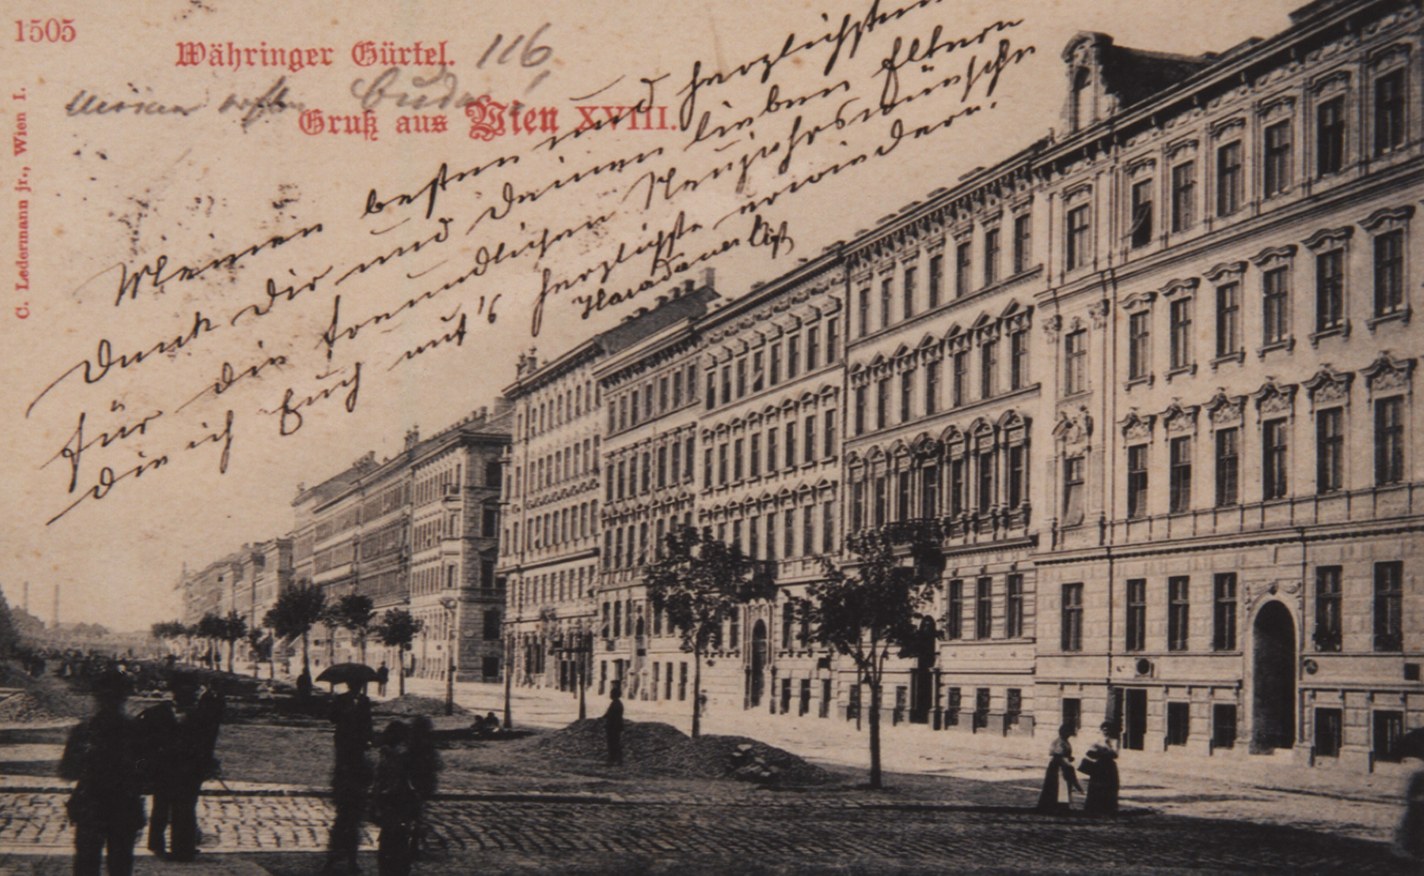 1505
Währinger Gürtel. 116,
Gruß aus Wien XVIII.
C. Ledermann jr., Wien I.
Meinen besten und herzlichsten
Dank Dir und Deinen lieben Eltern
für die freundlichen Neujahrswünsche
die ich Euch auf's herzlichste erwiedern.